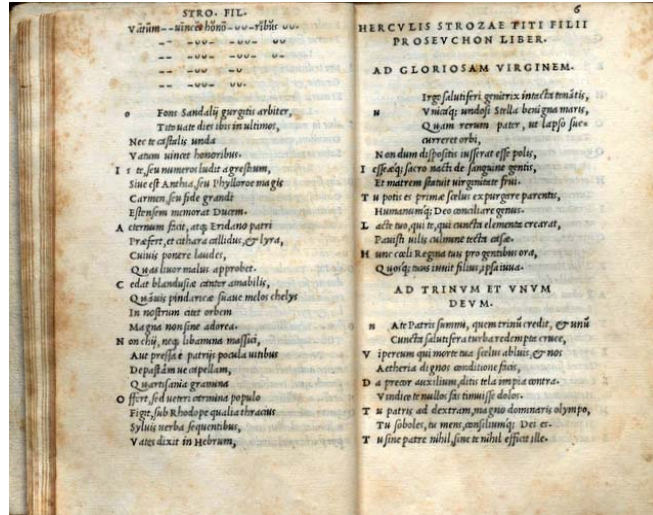 STRO. FIL.
Vatūm--uincet hōno--ribūs ᴗᴗ.
-- -ᴗᴗ- -ᴗᴗ- ᴗᴗ
-- -ᴗᴗ- -ᴗᴗ- ᴗᴗ
-- -ᴗᴗ- -ᴗ
-- -ᴗᴗ- ᴗᴗ
o Fons Sandalij gurgitis arbiter,
Tito uate dies ibis in ultimos,
Nec te castalis unda
Vatum uincet honoribus.
I s te, seu numeros ludit agrestium,
Siue est Anthia, seu Phylloroe magis
Carmen, seu fide grandi
Estensem memorat Ducem.
A eternum facit, atq; Eridano patri
Præfert, et cithara callidus, & lyra,
Cuius ponere laudes,
Quas liuor malus approbet.
C edat blandusiæ cantor amabilis,
Quāuis pindaricæ suaue melos chelys
In nostrum citet orbem
Magna non sine adorea.
N on chij, neq; libamina massici,
Aut pressa è patrijs pocula uitibus
Depastam ue capellam,
Quartisania gramina
O ffert, sed ueteri carmina populo
Figit, sub Rhodope qualia thracius
Syluis uerba sequentibus,
Vates dixit in Hebrum,
6
HERCVLIS STROZAE TITI FILII
PROSEVCHON LIBER.
AD GLORIOSAM VIRGINEM.
Irgo salutiferi genitrix intacta tonātis,
N Vnicaq; undosi Stella benigna maris,
Quam rerum pater, ut lapso suc-
curreret orbi,
Non dum dispositis iusserat esse polis,
I esseæq; sacro nacti de sanguine gentis,
Et matrem statuit uirginitate frui.
T u potis es primæ scelus expurgere parentis,
Humanumq; Deo conciliare genus.
L acte tuo, qui te, qui cuncta elementa crearat,
Pauisti uilis culmine tecta casæ.
H unc cæli Regina tuis pro gentibus ora,
Quosq; tuus iuuit filius, ipsa iuua.
AD TRINVM ET VNVM
DEVM.
N Ate Patris summi, quem trinū credit, & unū
Cuncta salutifera turba redempta cruce,
V ipereum qui morte tua scelus abluis, & nos
Aetheria dignos conditione facis,
D a precor auxilium, ditis tela impia contra.
Vindice te nullos fas timuisse dolos.
T u patris ad dextram, magno dominaris olympo,
Tu soboles, tu mens, consiliumq; Dei es.
T u sine patre nihil, sine te nihil efficit ille.